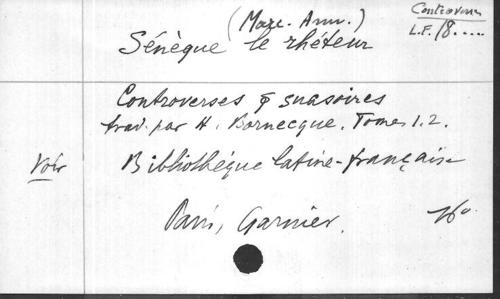 (Marc. Ann.)
Controverses
L.F. 18.....
Sénèque le rhéteur
Controverses & suasoires
trad. par H. Bornecque. Tomes 1.2.
Voir
Bibliothèque latine-française
Paris, Garnier.
16°